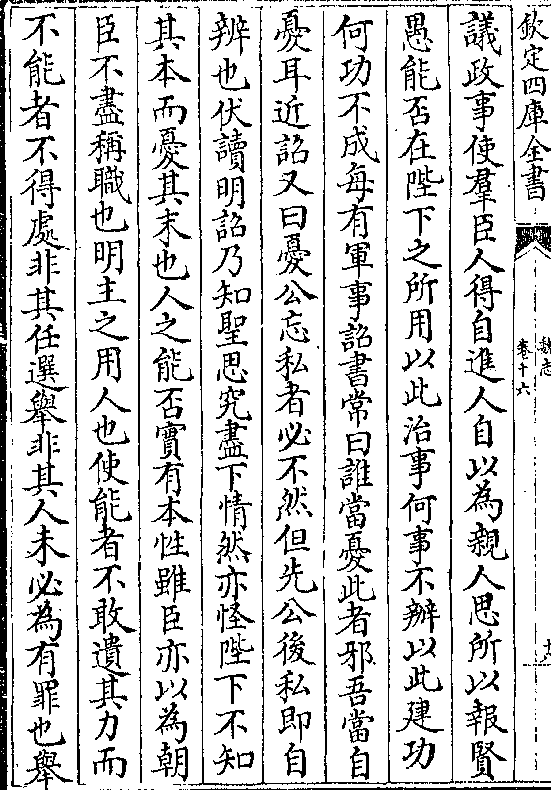 欽定四庫全書
魏志
卷十六
議政事使羣臣人得自進人自以為親人思所以報賢
愚能否在陛下之所用以此治事何事不辦以此建功
何功不成每有軍事詔書常曰誰當憂此者邪吾當自
憂耳近詔又曰憂公忘私者必不然但先公後私即自
辨也伏讀明詔乃知聖思究盡下情然亦怪陛下不知
其本而憂其末也人之能否實有本性雖臣亦以為朝
臣不盡稱職也明主之用人也使能者不敢遺其力而
不能者不得處非其任選舉非其人未必為有罪也舉